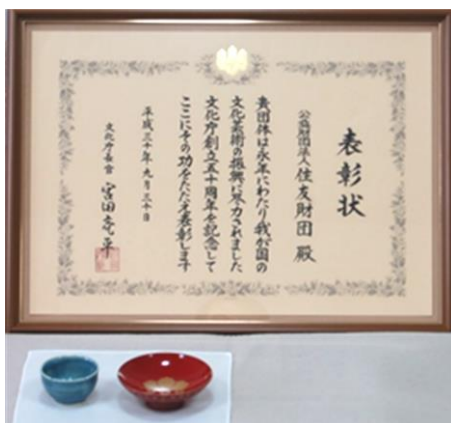 表彰状
公益財団法人 住友財団 殿
貴団体は永年にわたり我が国の
文化芸術の振興に尽力されました
文化庁創立五十周年を記念して
ここにその功をたたえ表彰します
平成三十年九月三十日
文化庁長官 宮田亮平